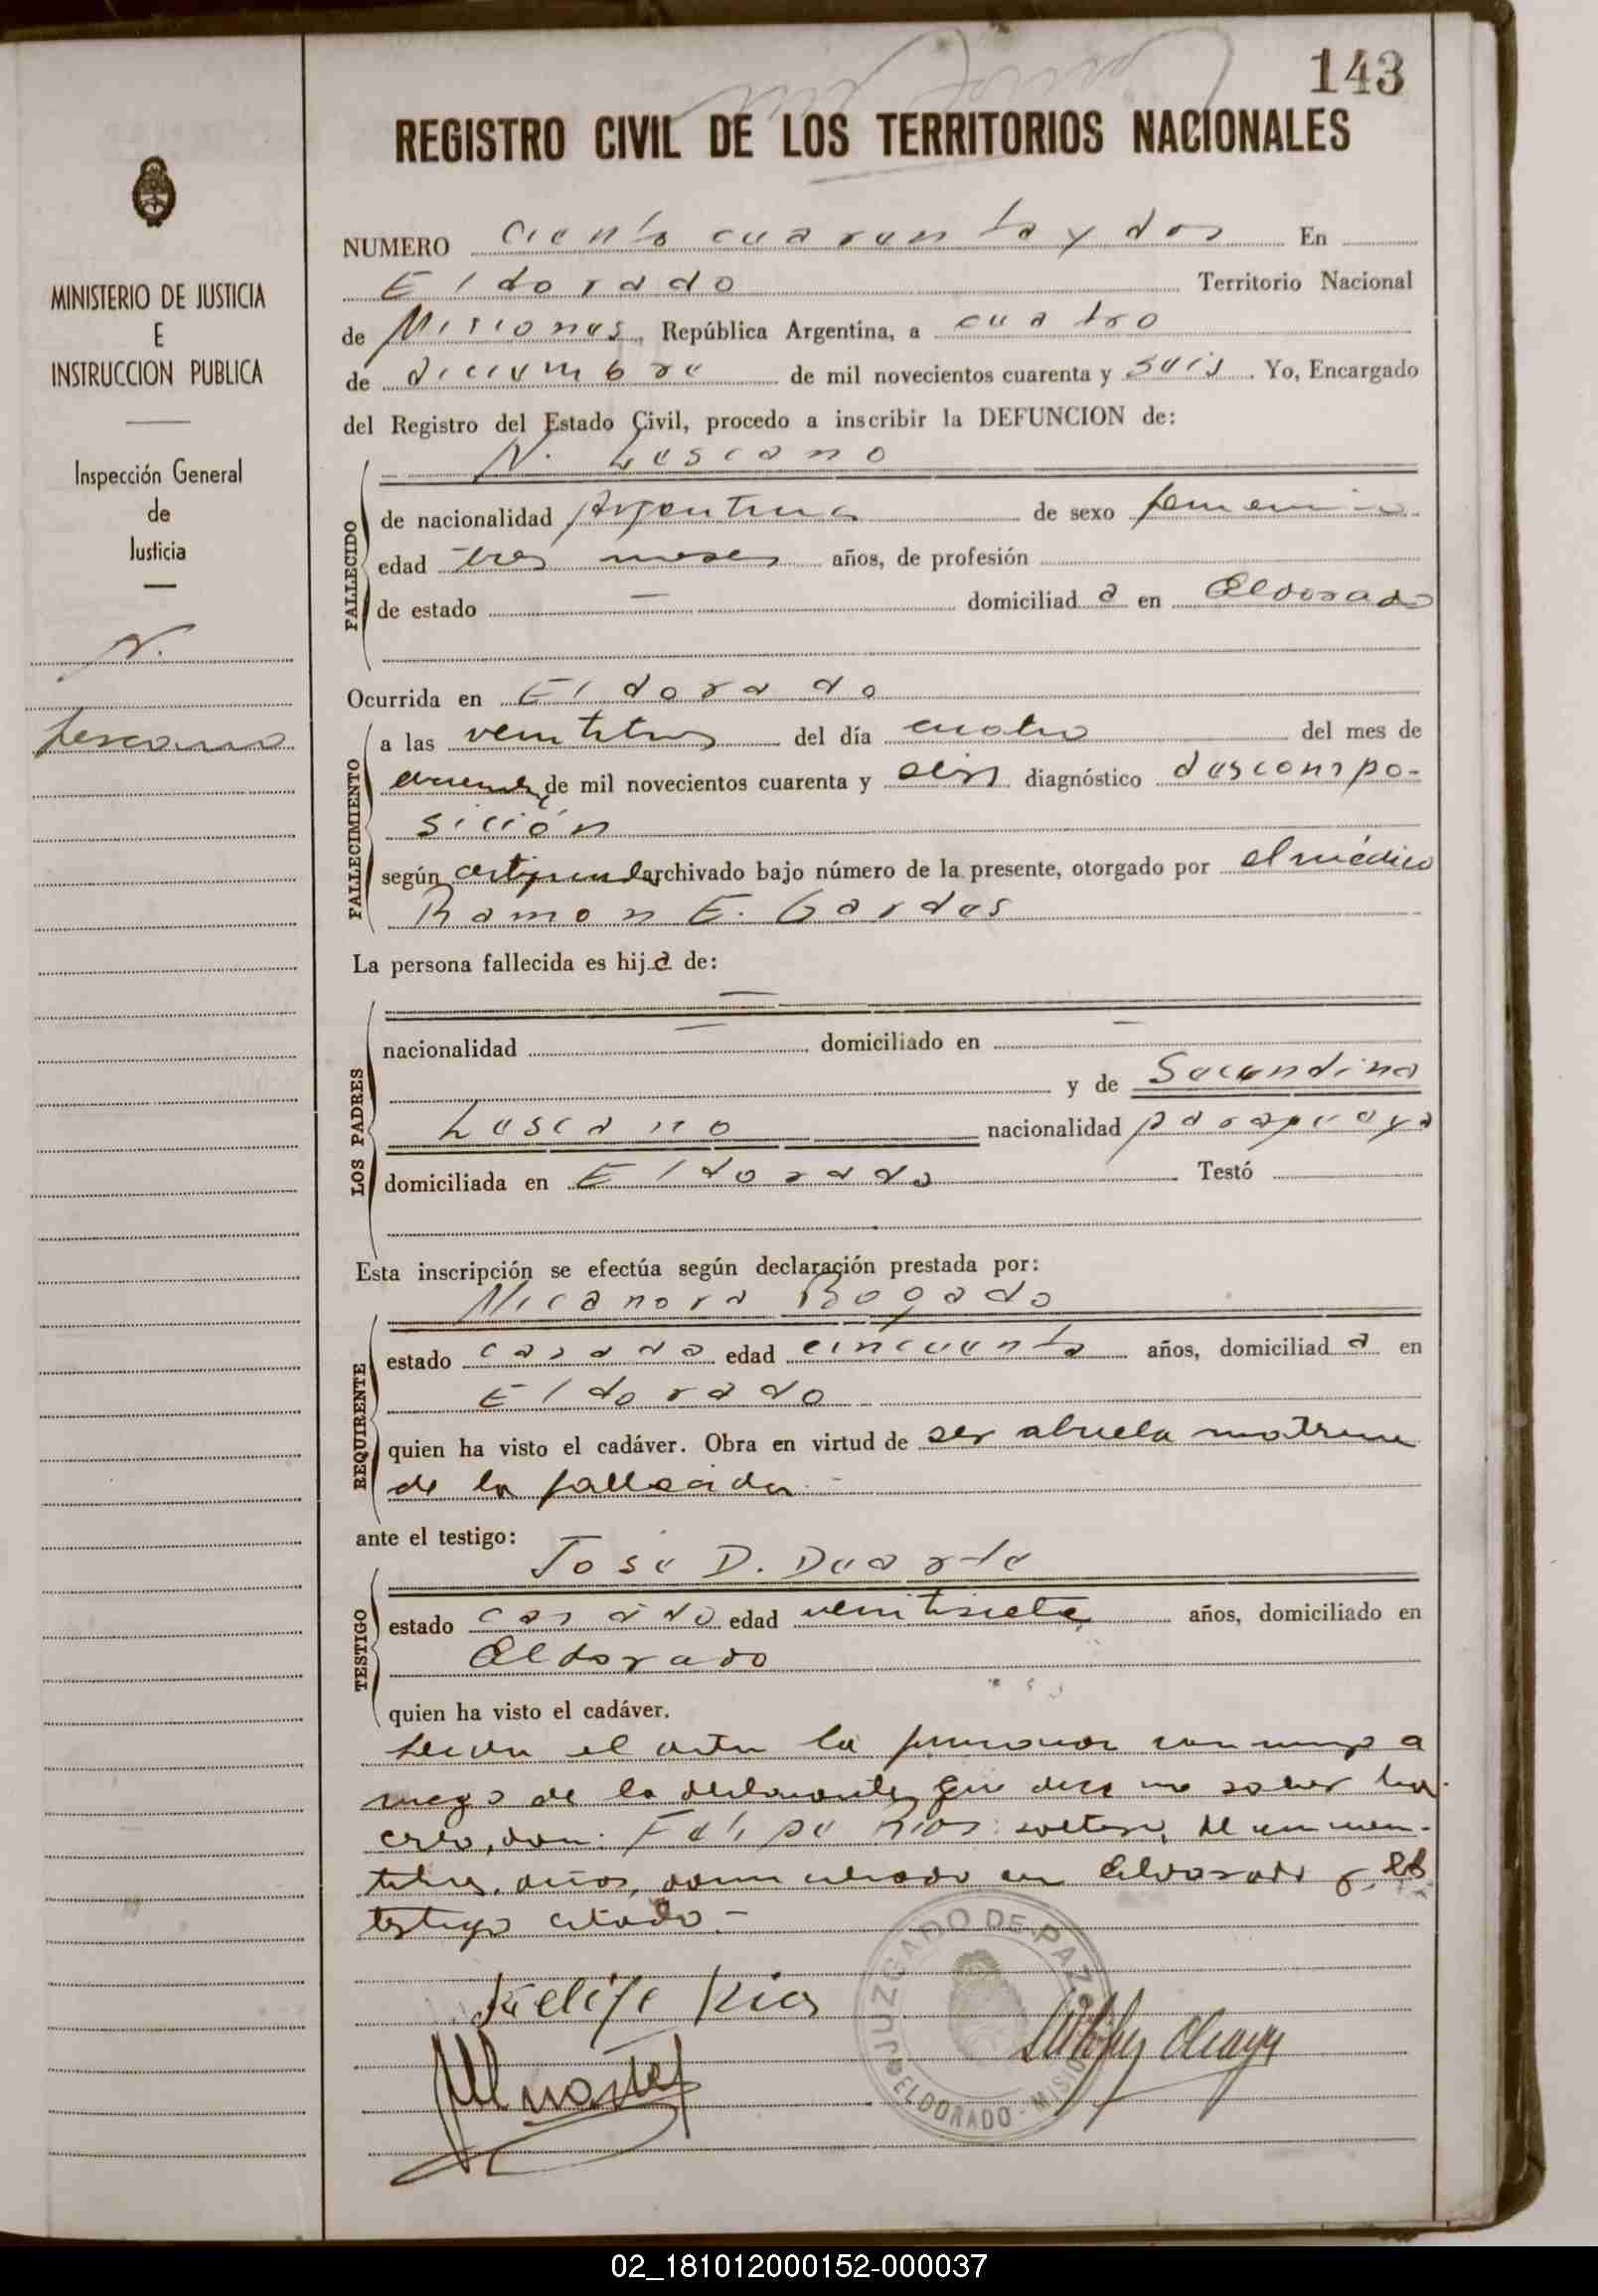 143
REGISTRO CIVIL DE LOS TERRITORIOS NACIONALES
MINISTERIO DE JUSTICIA
E
INSTRUCCION PUBLICA
Inspección General
de
Justicia
N.
Lescano
NUMERO Ciento cuarenta y dos En
Eldorado Territorio Nacional
de Misiones, República Argentina, a cuatro
de diciembre de mil novecientos cuarenta y seis. Yo, Encargado
del Registro del Estado Civil, procedo a inscribir la DEFUNCION de:
N. Lescano
FALLECIDO
de nacionalidad Argentina de sexo femenino
edad tres meses años, de profesión
de estado — domiciliad a en Eldorado
Ocurrida en Eldorado
FALLECIMIENTO
a las del día cuatro del mes de
de mil novecientos cuarenta y seis diagnóstico descompo-
sición
según archivado bajo número de la presente, otorgado por el médico
Ramon E. Gardes
La persona fallecida es hij a de:
LOS PADRES
—
nacionalidad — domiciliado en —
y de Secundina
Lescano nacionalidad paraguaya
domiciliada en Eldorado Testó
Esta inscripción se efectúa según declaración prestada por:
Nicanora Bogado
REQUIRENTE
estado casada edad cincuenta años, domiciliad a en
Eldorado
quien ha visto el cadáver. Obra en virtud de ser abuela materna
de la fallecida.-
ante el testigo:
Jose D. Duarte
TESTIGO
estado casado edad veintisiete años, domiciliado en
Eldorado
quien ha visto el cadáver.
Leida el acta la firmaron conmigo a
ruego de la declarante que dice no saber ha-
cerlo, don: Felipe Rios: soltero, de
años, domiciliado en Eldorado y el
testigo citado.-
Felipe Rios
JUZGADO DE PAZ
ELDORADO - MISIONES
02_181012000152-000037